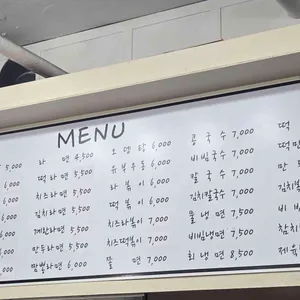 MENU
5,000
6,000
6,000
6,000
6,000
6,000
라면 4,500
떡라면 5,500
치즈라면 5,500
김치라면 5,500
계란라면 5,000
만두라면 5,500
짬뽕라면 6,000
오뎅탕 6,000
유부우동 6,000
라볶이 6,000
떡볶이 6,000
치즈라볶이 7,000
치즈떡볶이 7,000
쫄면 7,000
콩국수 7,000
비빔국수 7,000
칼국수 7,000
김치칼국수 7,000
물냉면 7,000
비빔냉면 7,500
회냉면 8,500
떡
떡만
만
김치볶
비빔
참치
제육